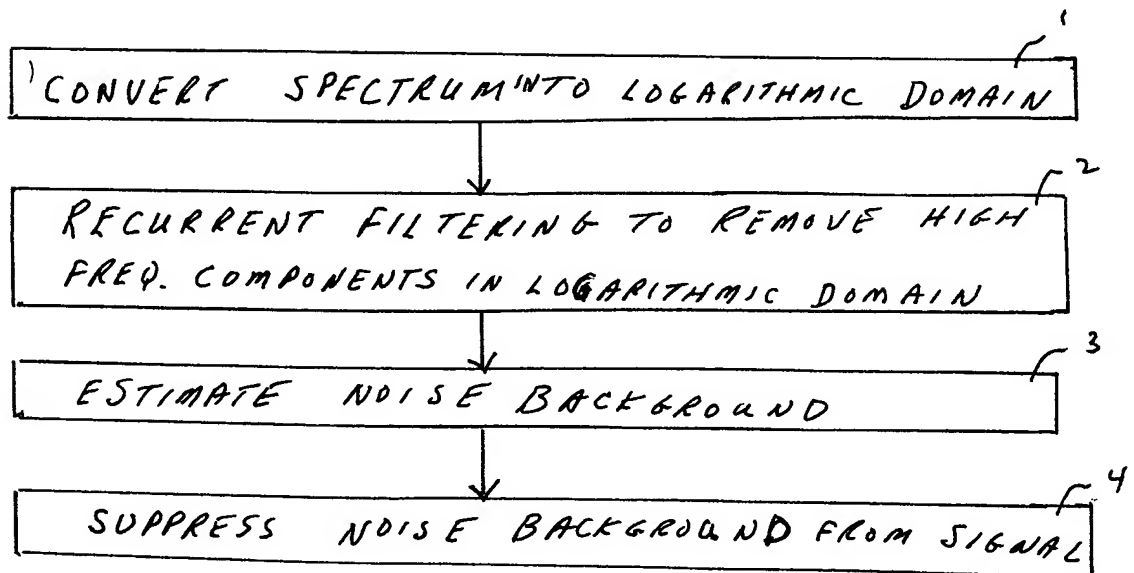 1
CONVERT SPECTRUM INTO LOGARITHMIC DOMAIN
2
RECURRENT FILTERING TO REMOVE HIGH
FREQ. COMPONENTS IN LOGARITHMIC DOMAIN
3
ESTIMATE NOISE BACKGROUND
4
SUPPRESS NOISE BACKGROUND FROM SIGNAL